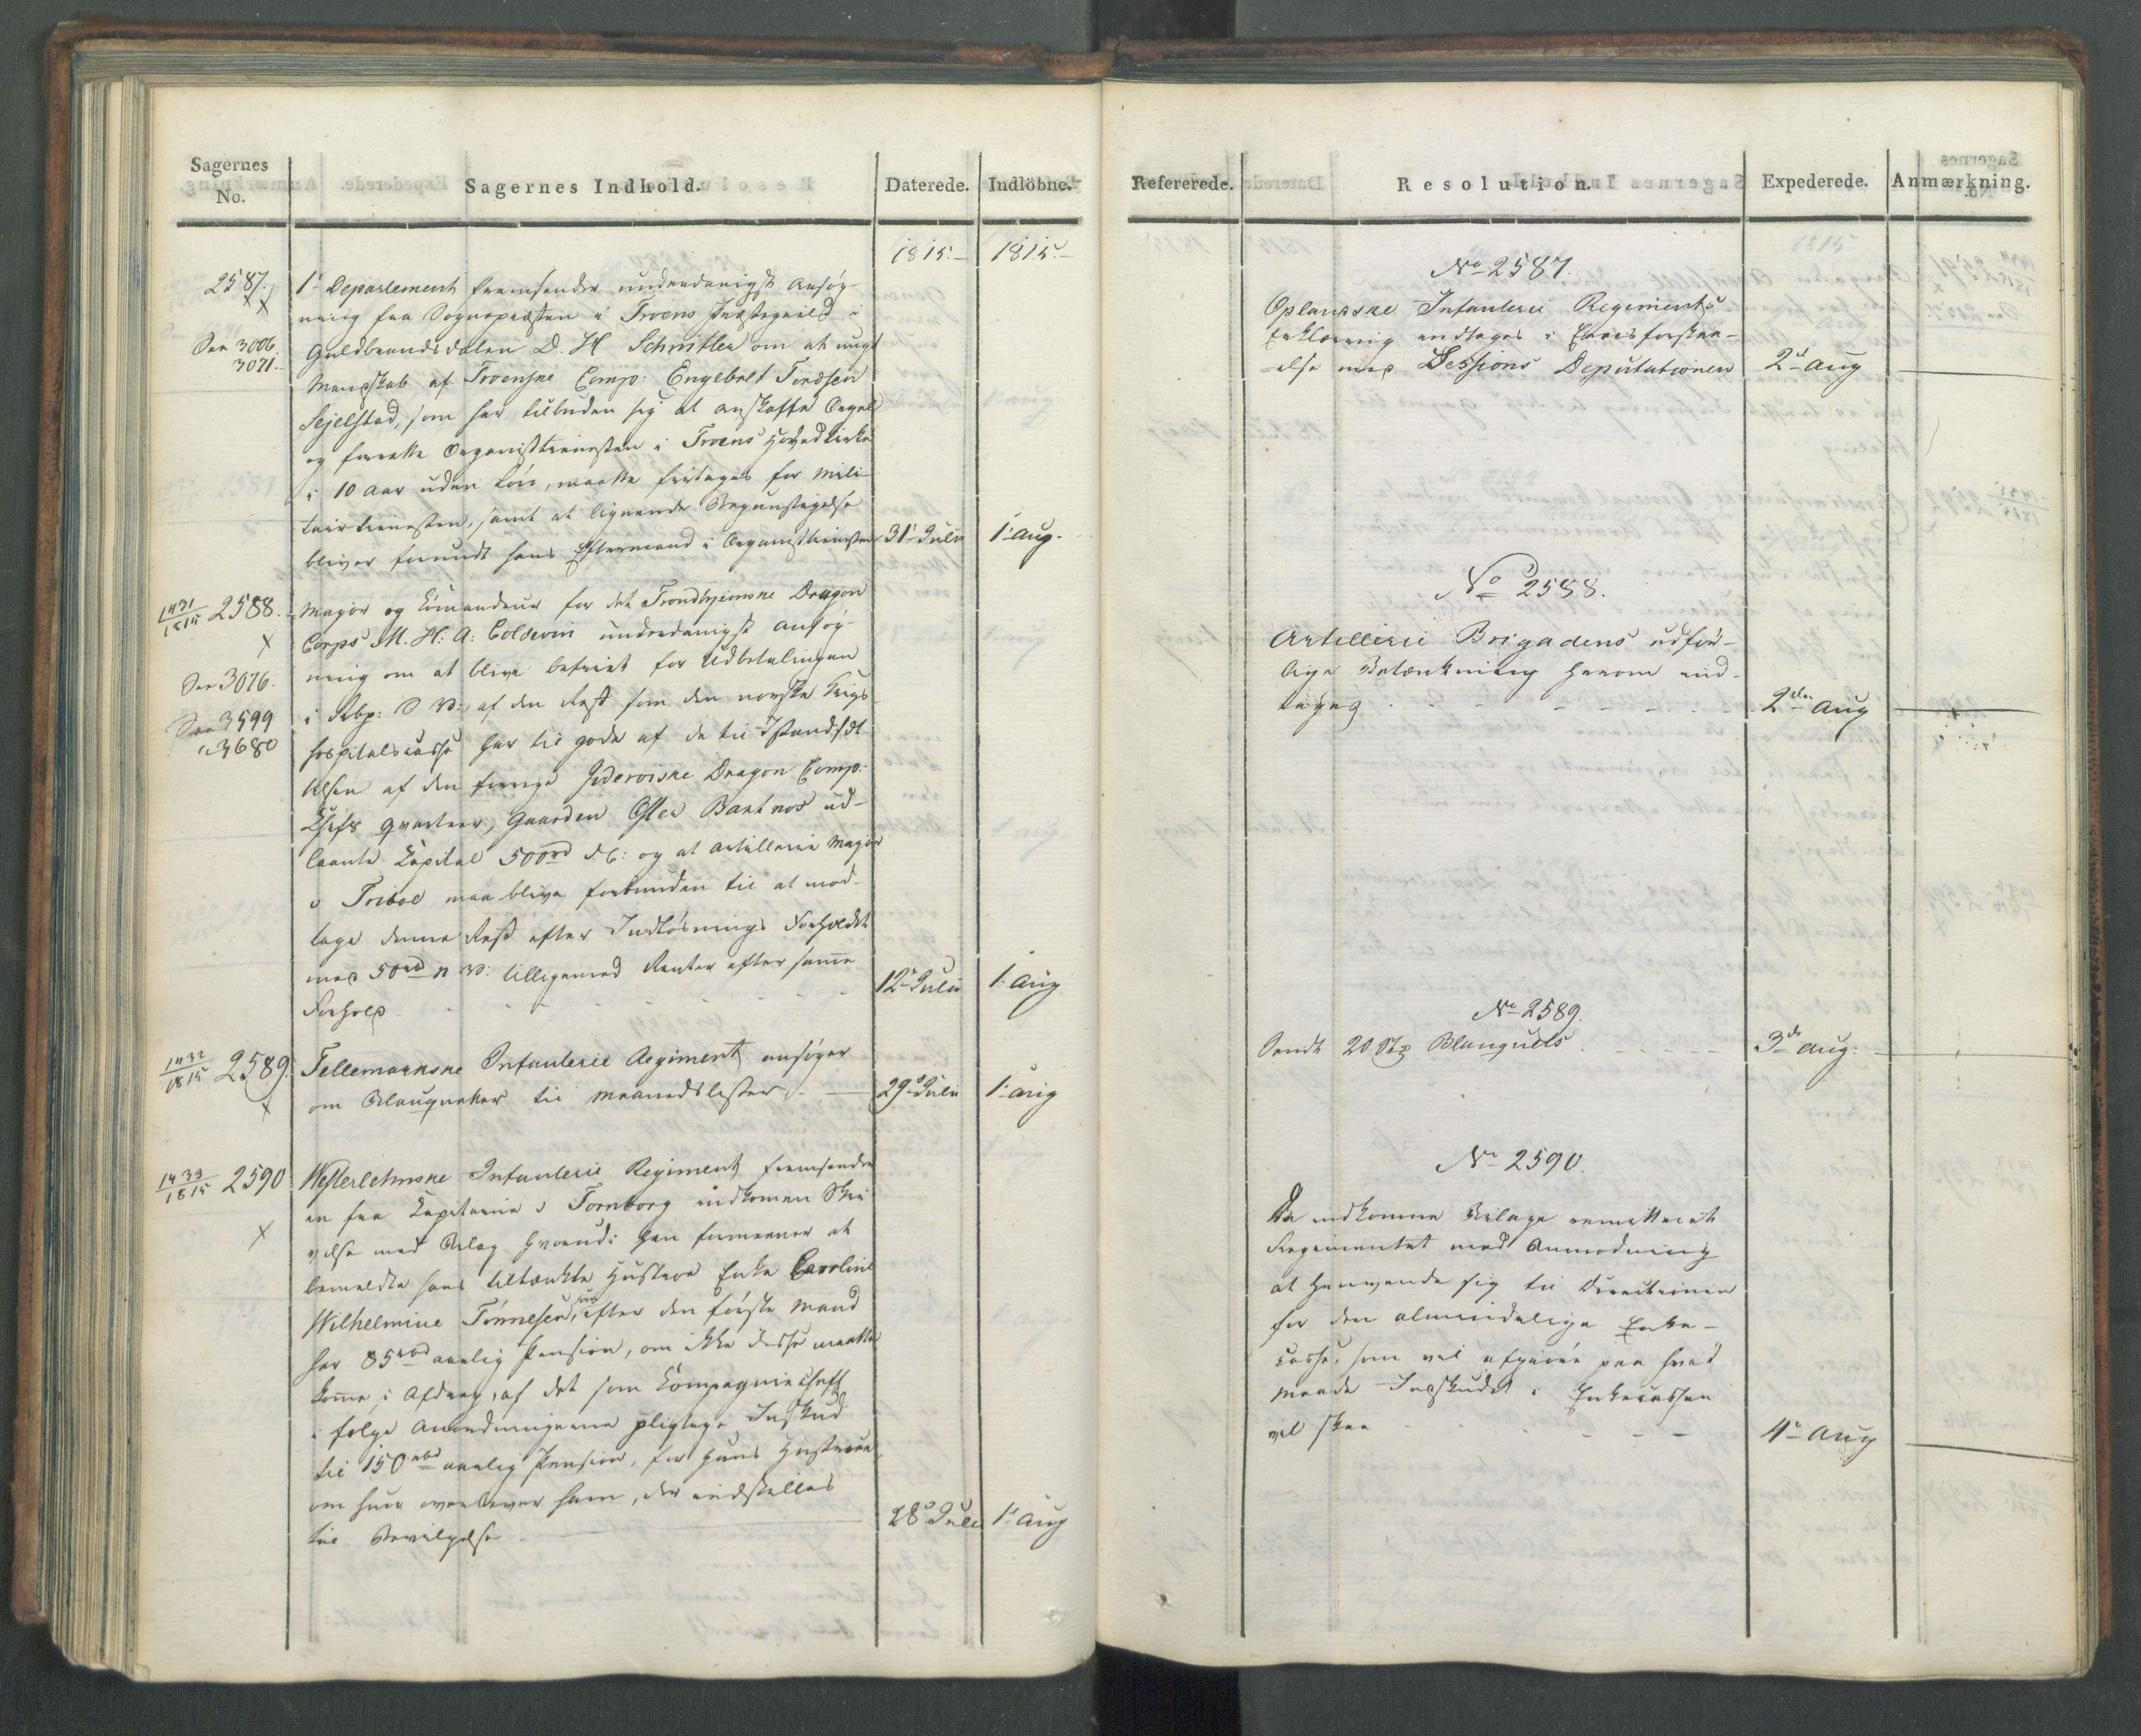 Sagernes
No.
Sagernes Indhold.
Daterede.
Indlöbne.
1815.
1815.
2587.
x x
See 3006.
3071.
1ste Departement fremsender underdanigst Ansøg-
ning fra Sognepræsten i Froens Præstegield i
Guldbrandsdalen D. H Schnitler om at ungt
Mandskab af Froenske Comp: Engebret Tordsen
Sejelstad, som har tilbuden sig at anskaffe Orgel
og forrette Organisttienesten i Froens Hovedkirke
i 10 Aar uden Løn, maatte fritages for Mili-
tairtienesten, samt at lignende Begunstigelse
bliver forundt hans Eftermand i Organisttienesten
31te Julii
1te Aug.
1431/1815 2588.
x
See 3076.
See 3599
" 3680
Major og Commandeur for det Trondhjemske Dragon
Corps M. H: A: Coldevin underdanigst Ansøg-
ning om at blive befriet for Udbetalingen
i Rbp: S V: af den Rest som den norske Krigs
hospitalscasse har til gode af de til Istandsæt-
telsen af den forrige Inderøiske Dragon Comp:
Chefs Qvarteer, Gaarden Øster Bartnes ud-
laante Capital 500rd DC: og at Artillerie Major
v Triboe maa blive forbunden til at mod-
tage denne Rest efter Indløsnings Forholdet
med 50rd N V: tilligemed Renter efter samme
Forhold
12te Julii
1 Aug
1432/1815 2589.
x
Tellemarkske Infanterie Regiment ansøger
om Blanquetter til Maanedslister
29de Julii
1 Aug
1433/1815 2590
x
Westerlehnske Infanterie Regiment fremsender
en fra Capitaine v Tornborg indkommen Skri-
velse med Bilag hvorudi han formener at
bemeldte hans tiltænkte Hustroe Enke Caroline
Wilhelmine Tønnesen, som efter den første Mand
har 85rbd aarlig Pension, om ikke disse maatte
komme i Afdrag, af det som Compagniechef
i følge Anordningerne pligtige Indskud
til 150rbd aarlig Pension, for hans Hustroe
om hun overlever ham, der indstilles
til Bevilgelse
28de Julii
1te Aug
Refererede.
Resolution.
Expederede.
Anmærkning.
No 2587.
Oplandske Infanterie Regiments
Erklæring indtages i Overensstem-
-else med Sessions Deputationen
2de Aug
No 2588.
Artillerie Brigadens udfør-
lige Betænkning herom ind-
tages
2den Aug
No 2589.
Sendt 20 Stk Blanquets
3de Aug:
No 2590.
De indkomne Bilage remitteret
Regimentet med Anmodning
at henvende sig til Directionen
for den almindelige Enke-
casse, som vil afgiøre paa hvad
Maade Indskudet i Enkecassen
vil skee
4de Aug